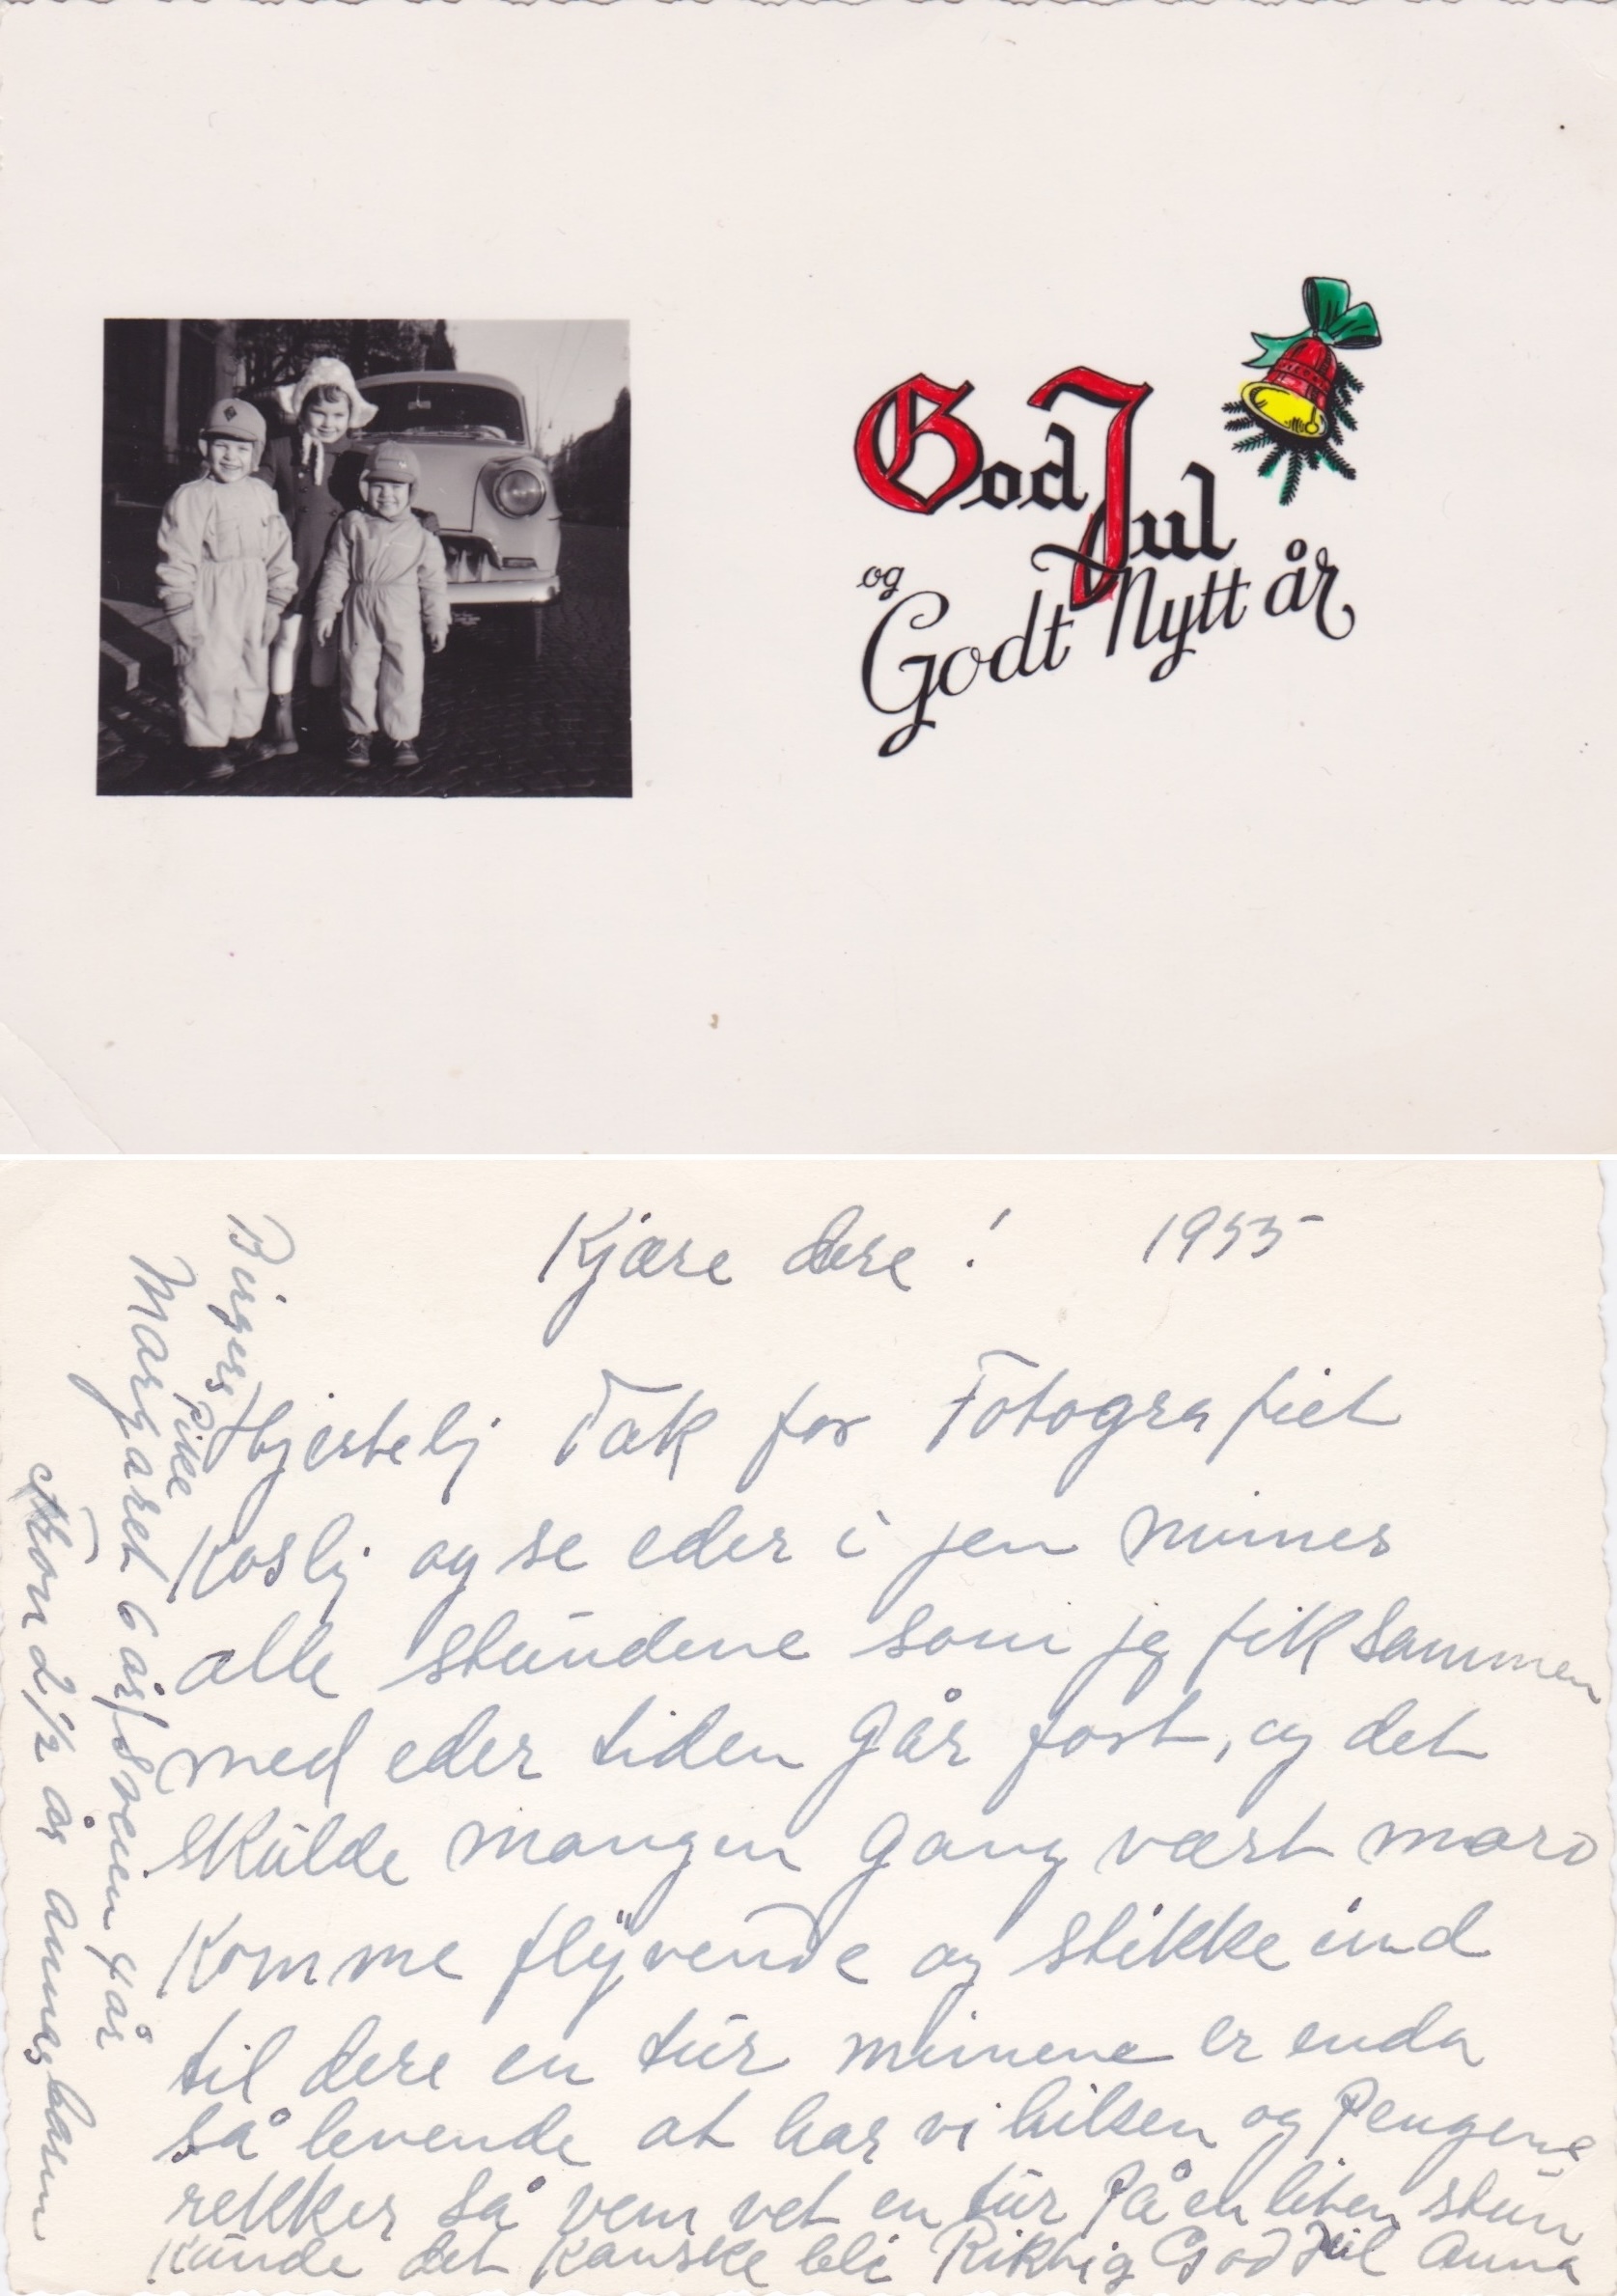 God Jul
og
Godt Nytt år
Kjære dere! 1955
Hjertelj Tak for Fotografiet
Koslj og se eder i jen minnes
alle stundene som jeg fik sammen
med eder tiden går fort, og det
skulde mangen gang vært moro
komme flyvende og stikke ind
til dere en tur minnene er enda
så levende at har vi hilsen og pengene
rekker så vem vet en tur på en liten stun
kunde det kanske bli Riktig God Jul Anna
Birgers Pike
Margaret 6 år/Svein 4 år
Tron 2 1/2 år Annas barn